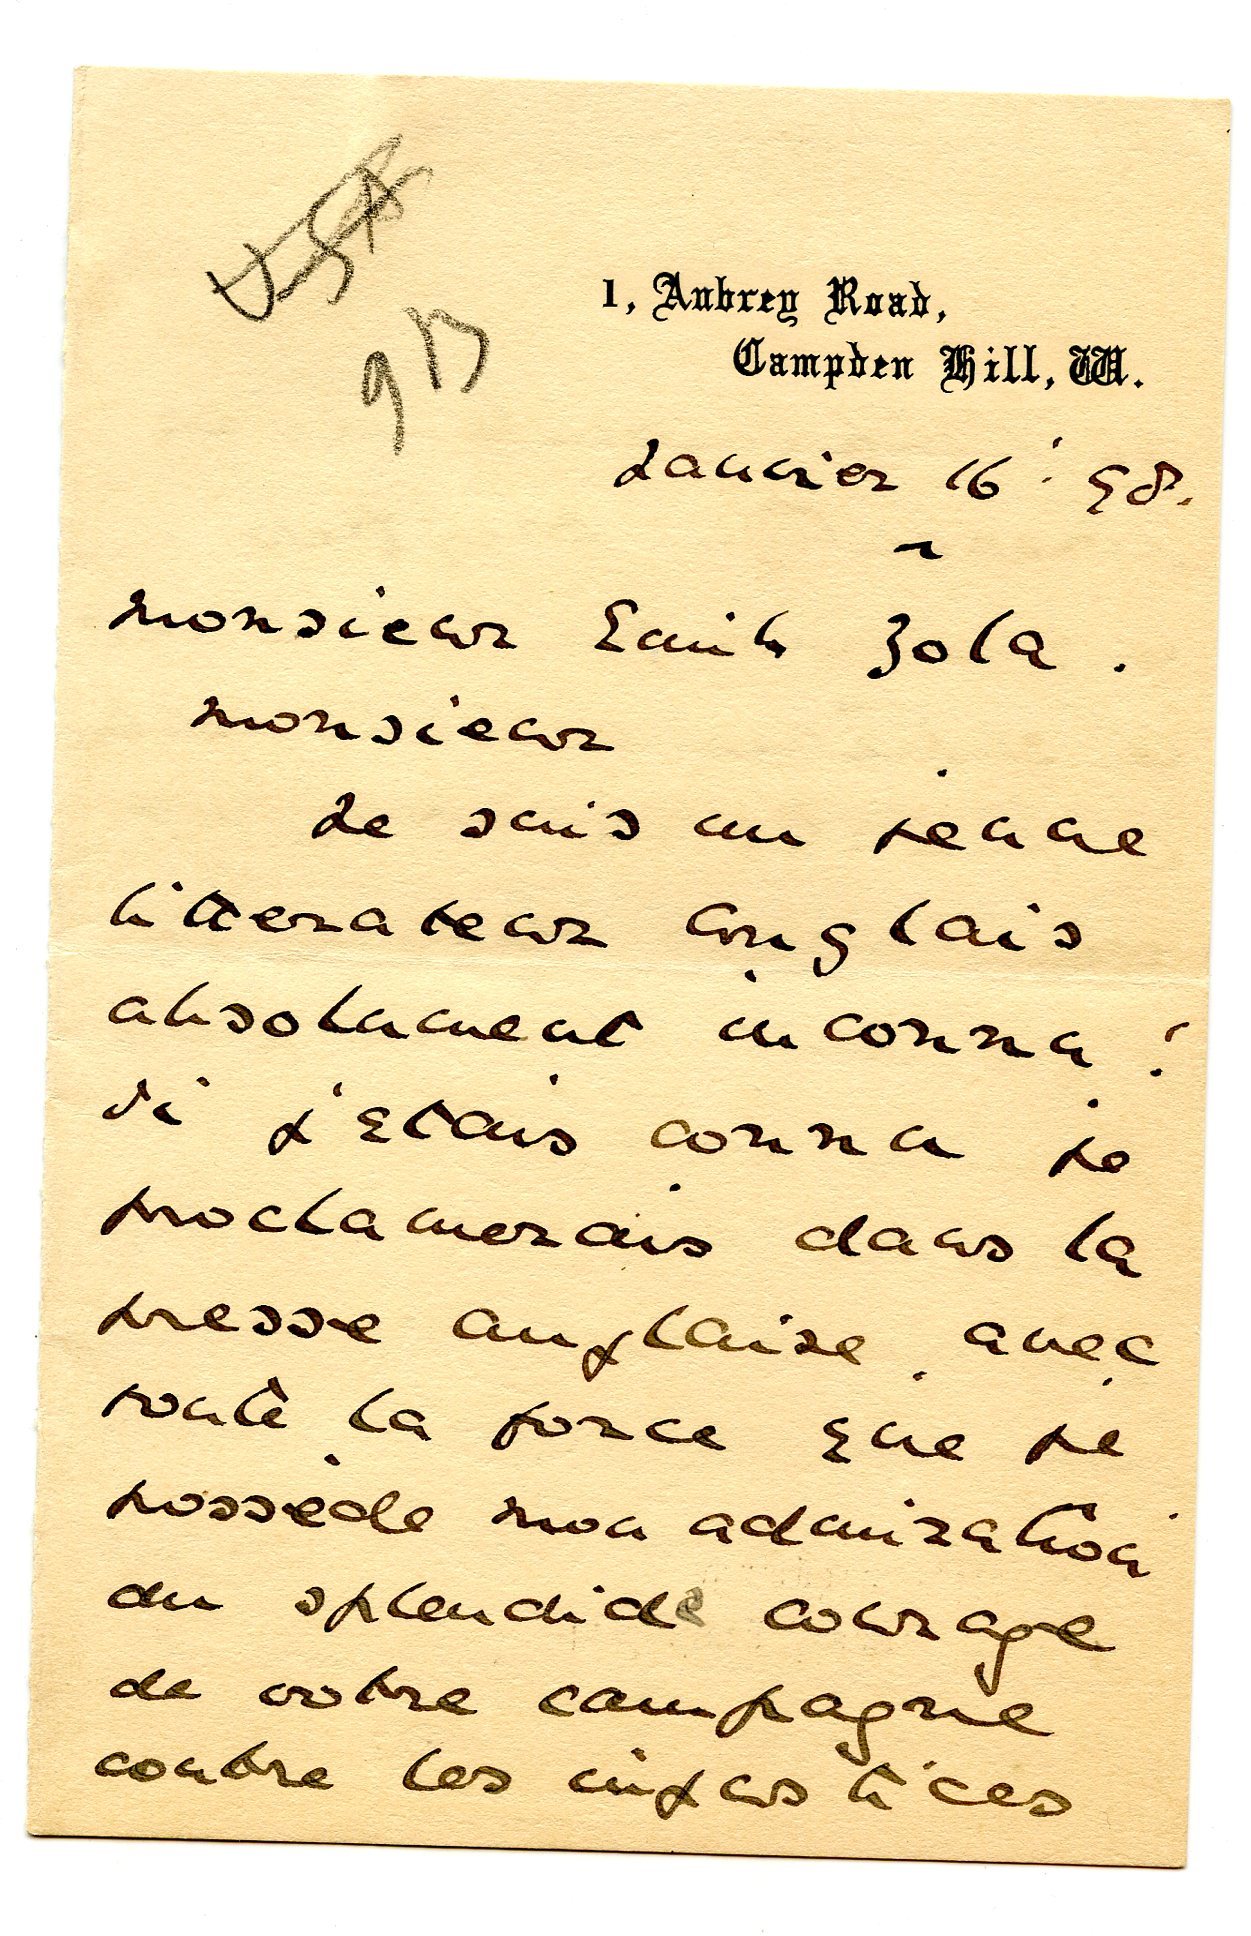 1, Aubrey Road,
Campden Hill, W.
Janvier 16 : 98.
Monsieur Emile Zola.
Monsieur
Je suis un jeune
litterateur Anglais
absolument inconnu :
Si j'etais connu je
proclamerais dans la
presse anglaise avec
toute la force que je
possède mon admiration
du splendide courage
de votre campagne
contre les injustices